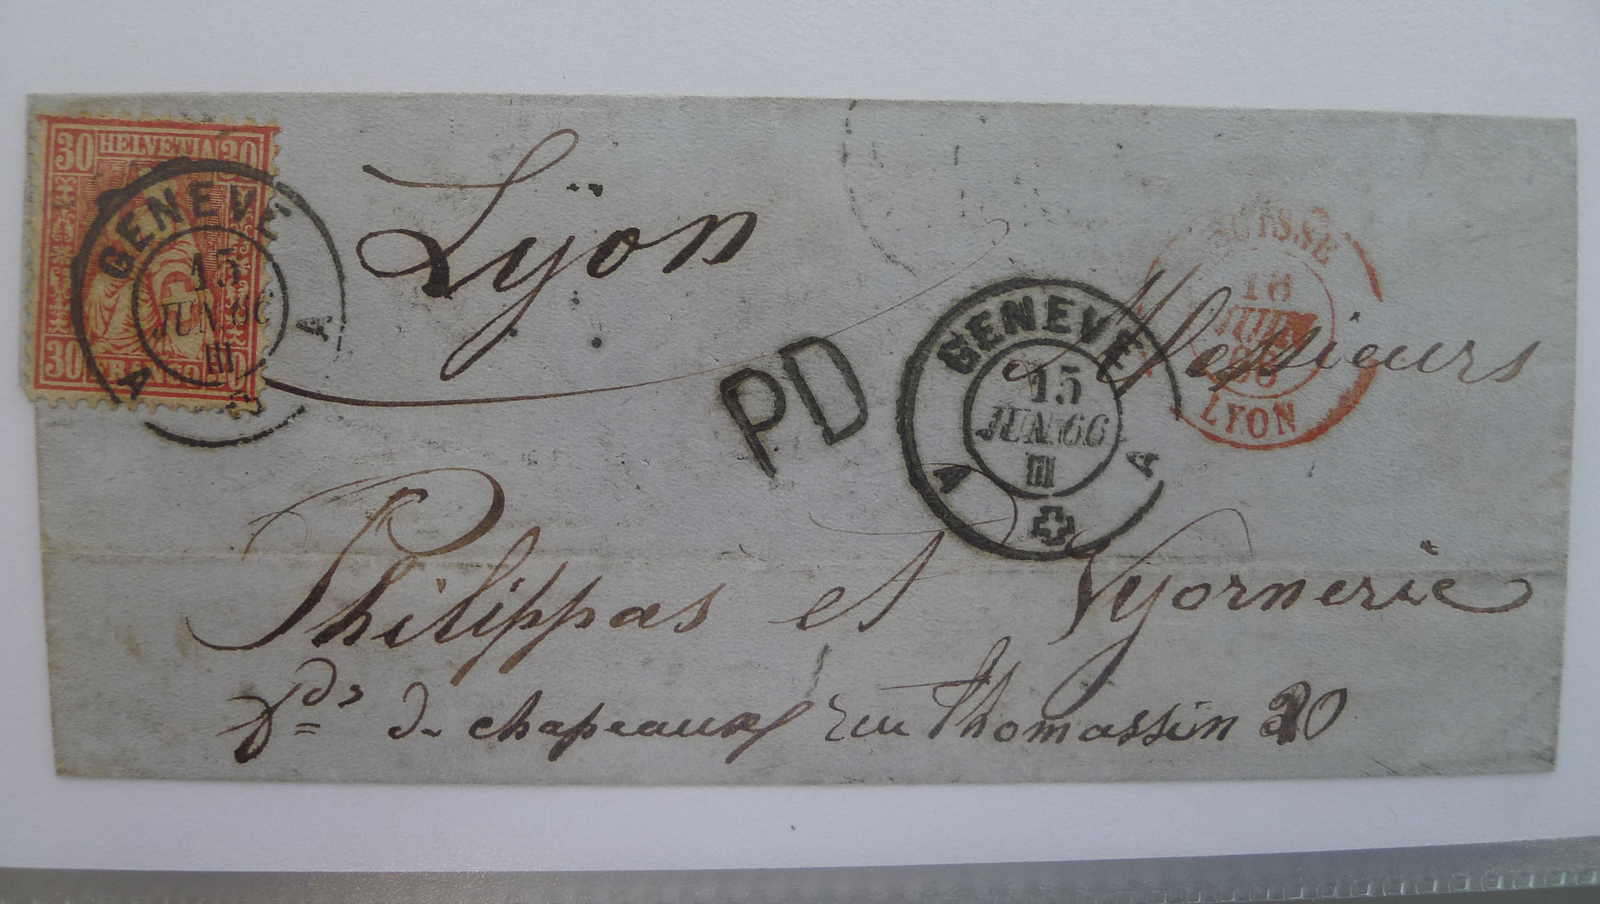 30 HELVETIA 30
30 FRANCO 30
GENEVE
15
JUN.66
III
A A
Lÿon
PD
GENEVE
15
JUN.66
III
A A
SUISSE
16
JUIN
66
LYON
Messieurs
Philippas et Vyornerie
de chapeaux rue Thomassin 20